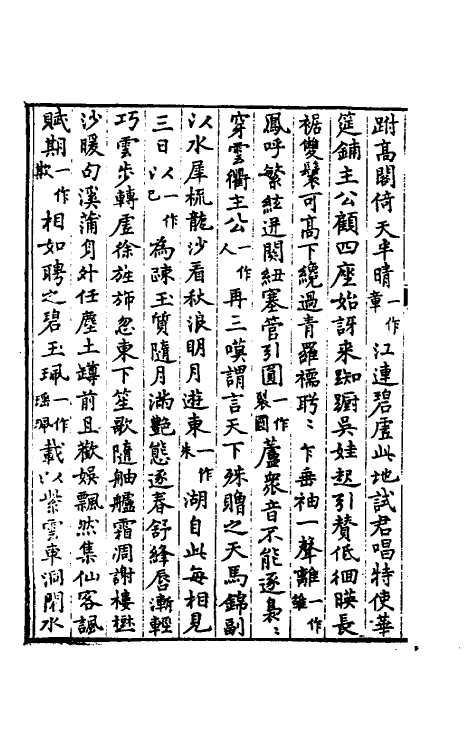 跗高閣倚天半晴一作章江連碧虛此地試君唱特使華
筵鋪主公顧四座始訝来踟蹰吳娃起引賛低徊暎長
裾雙鬟可高下纔過青羅襦聁〻乍垂袖一聲離一作雛
鳳呼繁絃迸関紐塞管引圓一作裂圓蘆衆音不能逐裊〻
穿雲衢主公一作人再三嘆謂言天下殊贈之天馬錦副
以水犀梳龍沙看秋浪明月遊東一作朱湖自此每相見
三日以一作已為踈玉質隨月滿艷態逐春舒絳唇漸輕
巧雲步轉虛徐旌斾忽東下笙歌隨舳艫霜凋謝樓樹
沙暖句溪蒲身外任塵土罇前且歡娛飄然集仙客諷
賦期一作欺相如聘之碧玉珮一作瑶珮載以紫雲車洞閉水